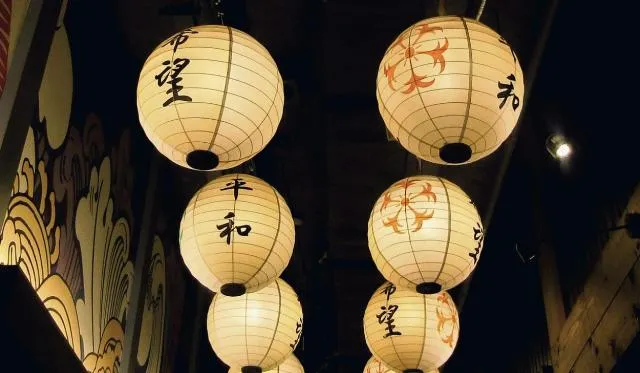 希望
和
平和
希望